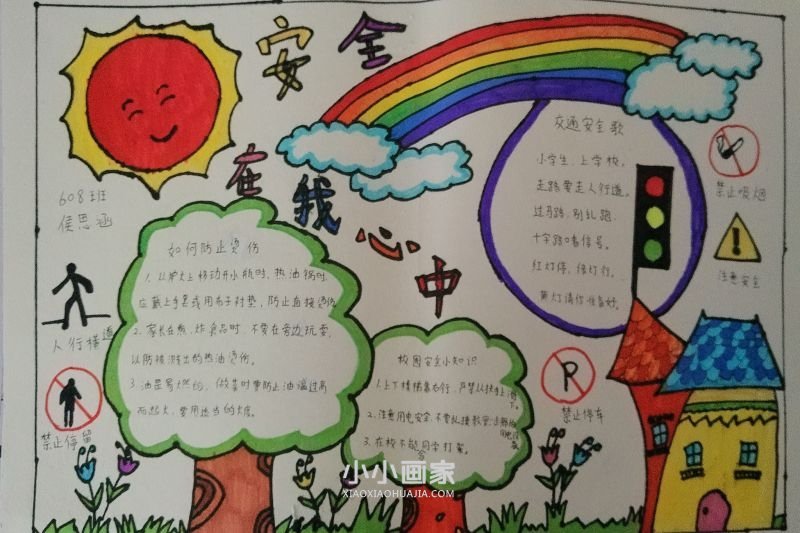 安全
在我心中
608班
侯思涵
如何防止烫伤
1. 从炉火上移动开水瓶时、热油锅时.
应戴上手套或用布子衬垫，防止直接烫伤
2. 家长在煎、炸食品时，不要在旁边玩耍.
以防被溅出的热油烫伤。
3. 油是易燃的，做菜时要防止油温过高
而起火，要用适当的火度.
校园安全小知识
1. 上下楼梯靠右行，严禁从扶手上滑下。
2. 注意用电安全，不要乱接教室
3. 在校不能同学打架。
交通安全歌
小学生，上学校，
走路要走人行道。
过马路，别乱跑.
十字路口看信号。
红灯停，绿灯行。
黄灯请你准备好。
禁止吸烟
注意安全
人行横道
禁止停留
P
禁止停车
小小画家
XIAOXIAOHUAJIA.COM